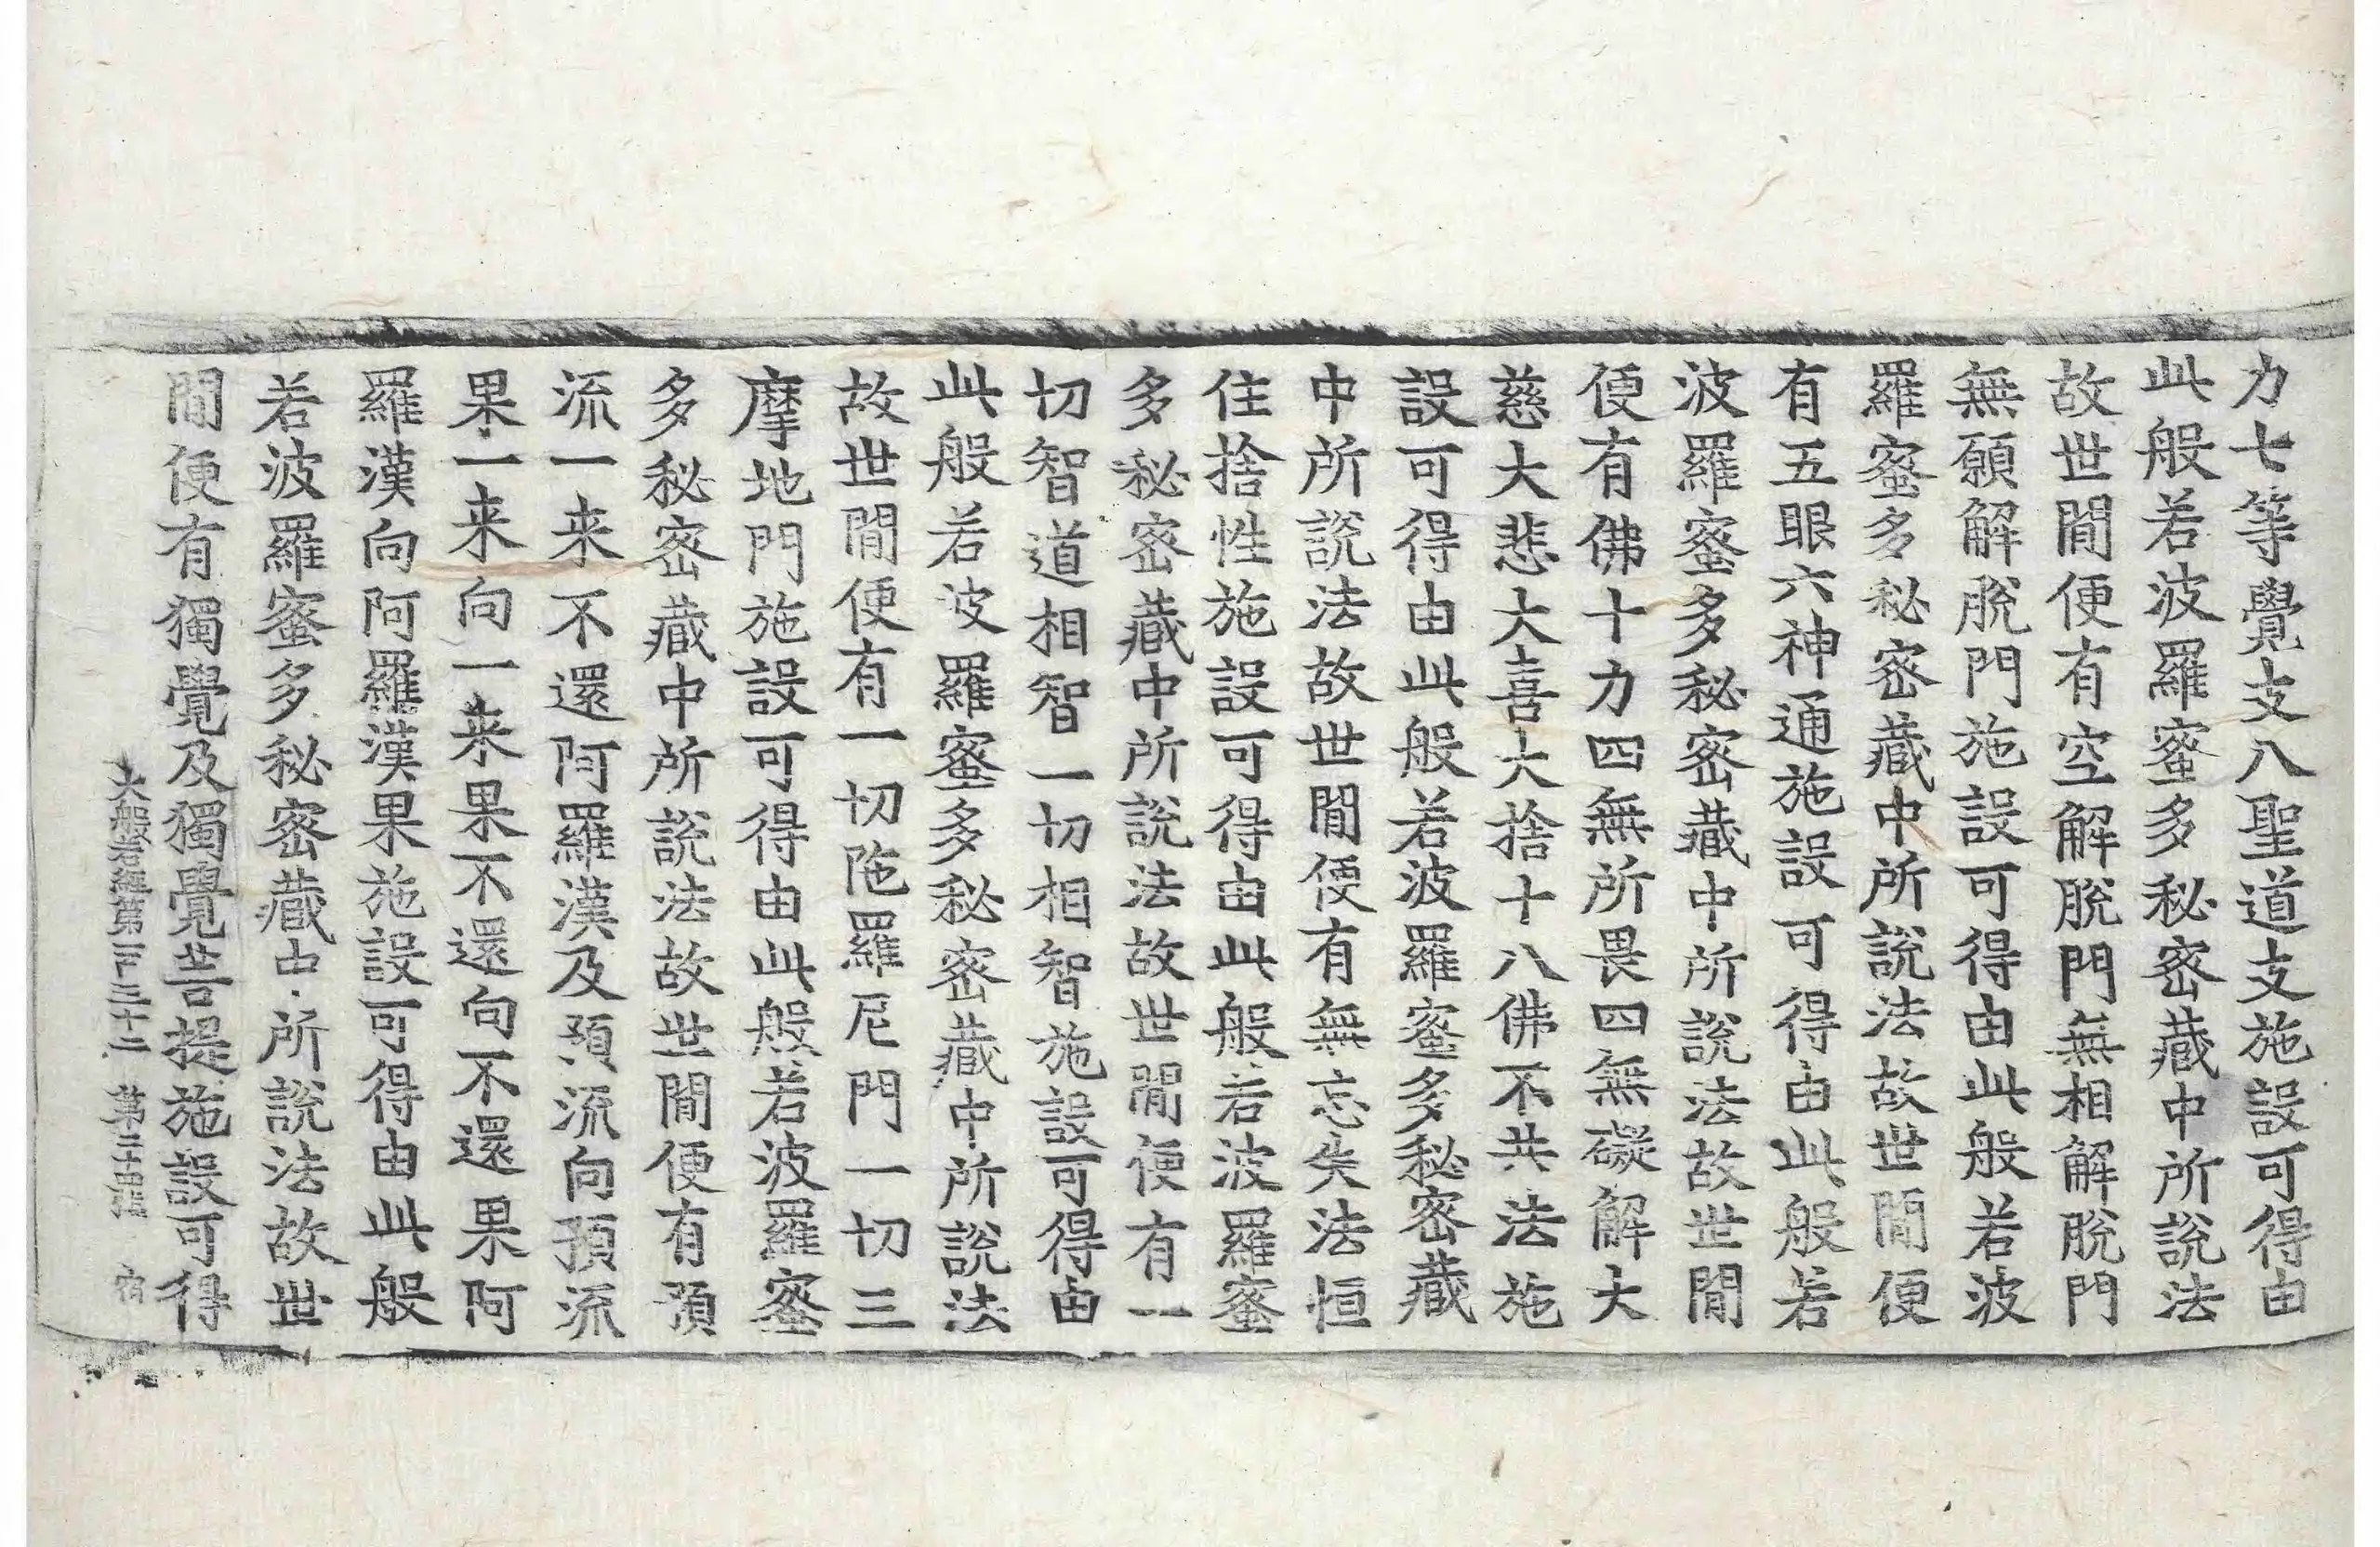 力七等覺支八聖道支施設可得由
此般若波羅蜜多秘密藏中所說法
故世間便有空解脫門無相解脫門
無願解脫門施設可得由此般若波
羅蜜多秘密藏中所說法故世間便
有五眼六神通施設可得由此般若
波羅蜜多秘密藏中所說法故世間
便有佛十力四無所畏四無礙解大
慈大悲大喜大捨十八佛不共法施
設可得由此般若波羅蜜多秘密藏
中所說法故世間便有無忘失法恒
住捨性施設可得由此般若波羅蜜
多秘密藏中所說法故世間便有一
切智道相智一切相智施設可得由
此般若波羅蜜多秘密藏中所說法
故世間便有一切陁羅尼門一切三
摩地門施設可得由此般若波羅蜜
多秘密藏中所說法故世間便有預
流一来不還阿羅漢及預流向預流
果一来向一来果不還向不還果阿
羅漢向阿羅漢果施設可得由此般
若波羅蜜多秘密藏中所說法故世
間便有獨覺及獨覺菩提施設可得
大般若經第一百三十二 第二十四張 宿